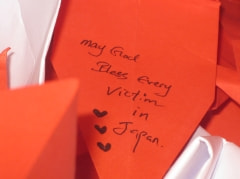 May God
Bless Every
Victim
in
Japan.